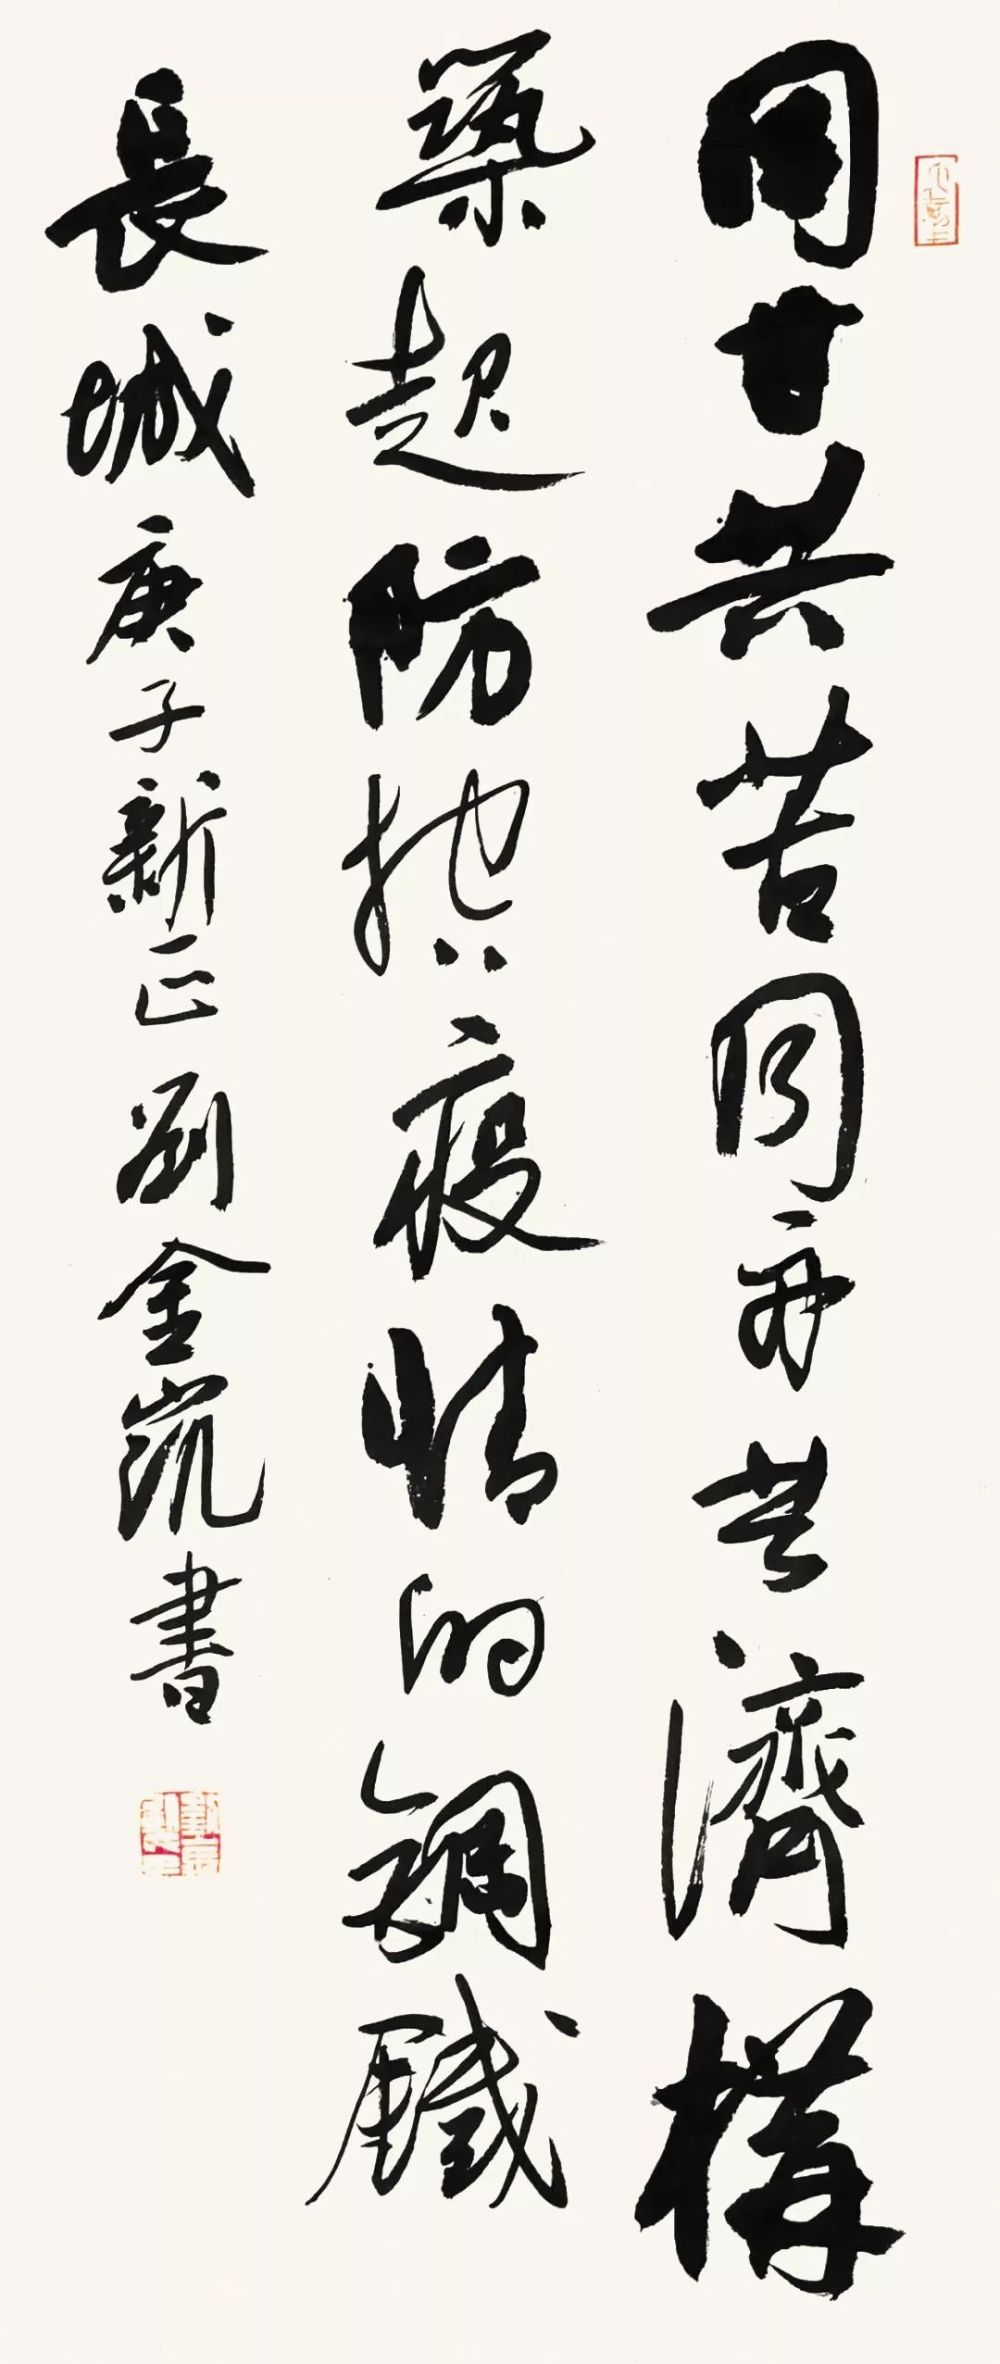 同甘共苦同舟共濟構
築起防控疫情的鋼鐵
長城庚子新正劉金凱書